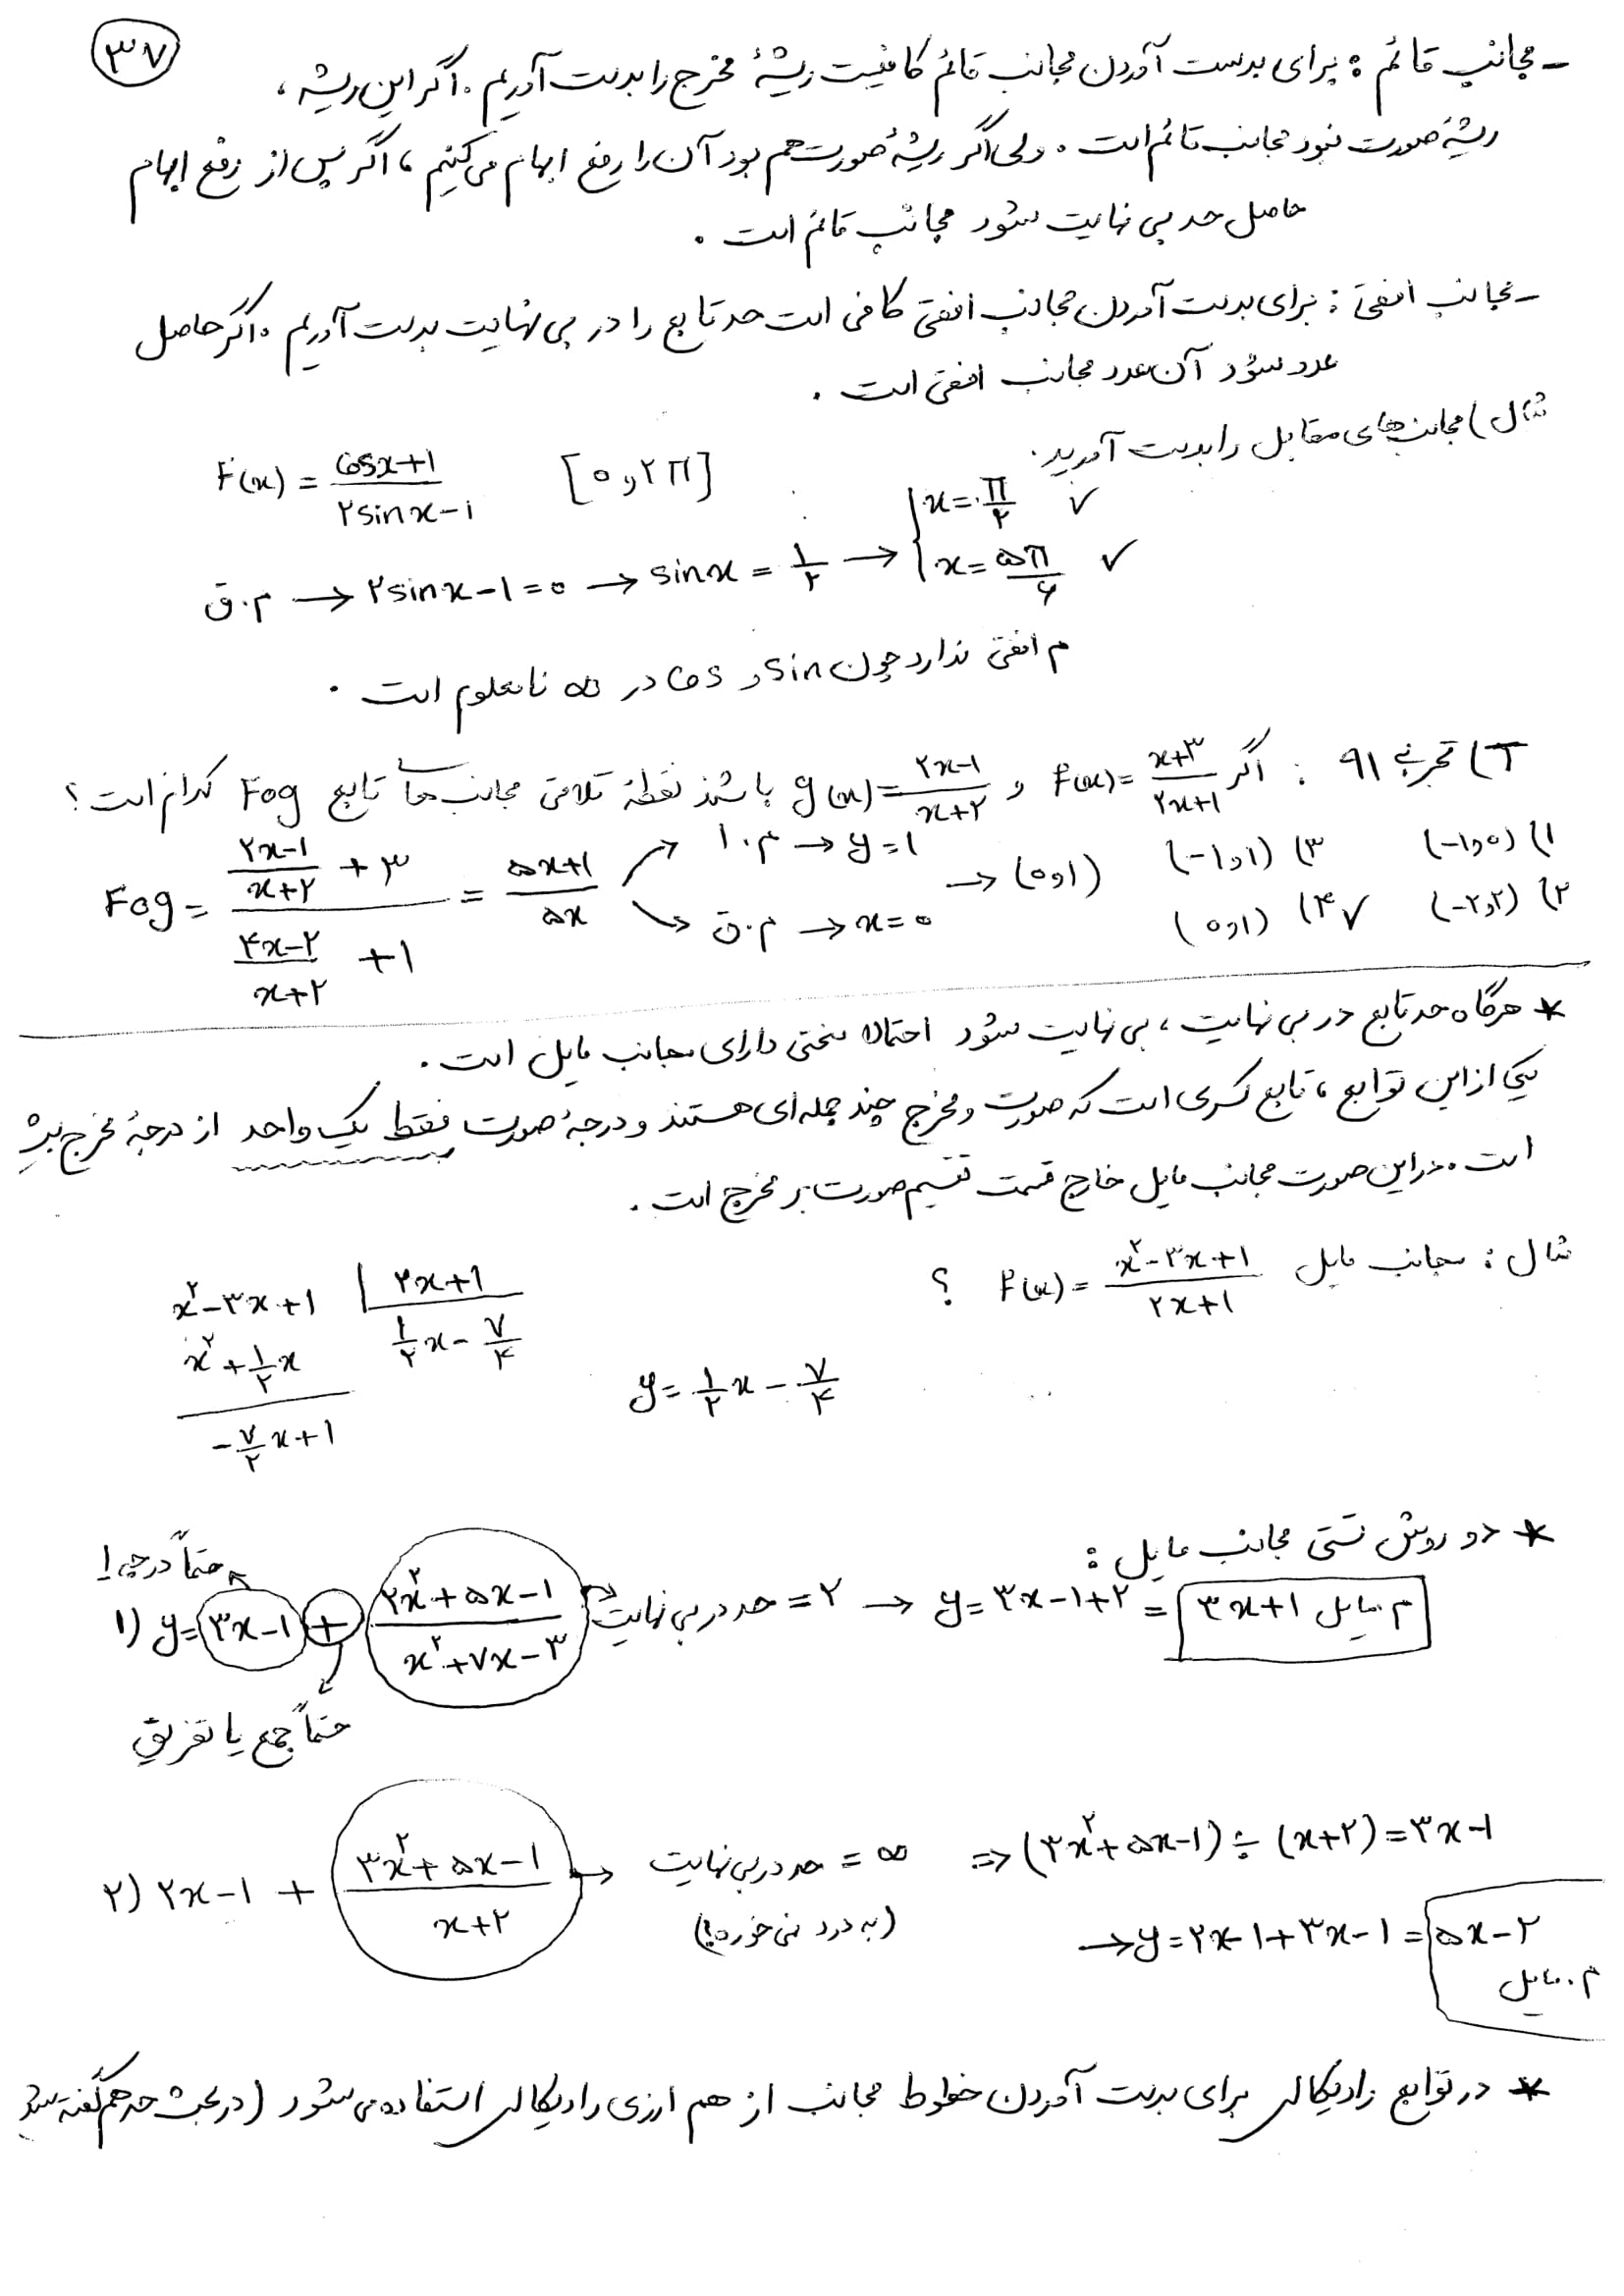 ۳۷
- مجانب قائم : برای بدست آوردن مجانب قائم کافیست ریشهٔ مخرج را بدست آوریم . اگر این ریشه ،
ریشهٔ صورت نبود مجانب قائم است . ولی اگر ریشهٔ صورت هم بود آن را رفع ابهام می‌کنیم ، اگر پس از رفع ابهام
حاصل حد بی نهایت شود مجانب قائم است .
- مجانب افقی : برای بدست آوردن مجانب افقی کافی است حد تابع را در بی نهایت بدست آوریم . اگر حاصل
عدد شود آن عدد مجانب افقی است .
مثال ) مجانب‌های مقابل را بدست آورید .
F(x) = (Cosx+۱)/(۲sinx-۱) [۰ و ۲π]
م.ق → ۲sinx-۱=۰ → sinx = ۱/۲ → { x = π/۲ ✓
x = ۵π/۶ ✓
م افقی ندارد چون Sin و Cos در ∞ نامعلوم است .
T) تجربی ۹۱ : اگر f(x) = (x+۳)/(۲x+۱) و g(x) = (۲x-۱)/(x+۲) باشند نقطهٔ تلاقی مجانب‌ها تابع Fog کدام است ؟
Fog = ((۲x-۱)/(x+۲) + ۳)/((۴x-۲)/(x+۲) + ۱) = (۵x+۱)/۵x
م.ا → y=۱
م.ق → x=۰
→ (۰و۱)
۱) (-۱و۰)
۲) (-۲و۲)
۳) (-۱و۱)
۴) ✓ (۰و۱)
* هرگاه حد تابع در بی نهایت ، بی نهایت شود احتمالا منحنی دارای مجانب مایل است .
یکی از این توابع ، تابع کسری است که صورت و مخرج چند جمله‌ای هستند و درجهٔ صورت فقط یک واحد از درجهٔ مخرج بیشتر
است . در این صورت مجانب مایل خارج قسمت تقسیم صورت بر مخرج است .
مثال : مجانب مایل F(x) = (x²-۳x+۱)/(۲x+۱) ؟
x²-۳x+۱ | ۲x+۱
x²+۱/۲x ۱/۲x - ۷/۴
-۷/۲x+۱
y = ۱/۲x - ۷/۴
* دو روش تستی مجانب مایل :
حتماً درجه ۱
۱) y = ۳x-۱ + (۲x²+۵x-۱)/(x²+۷x-۳) → حد در بی نهایت = ۲ → y = ۳x-۱+۲ = ۳x+۱ م.مایل
حتماً جمع یا تفریق
۲) ۲x-۱ + (۳x²+۵x-۱)/(x+۲) → حد در بی نهایت = ∞ ⇒ (۳x²+۵x-۱) ÷ (x+۲) = ۳x-۱
(به درد نمی خوره!)
→ y = ۲x-۱+۳x-۱ = ۵x-۲
م.مایل
* در توابع رادیکالی برای بدست آوردن خطوط مجانب از هم ارزی رادیکالی استفاده می شود (در بحث حد هم گفته شد